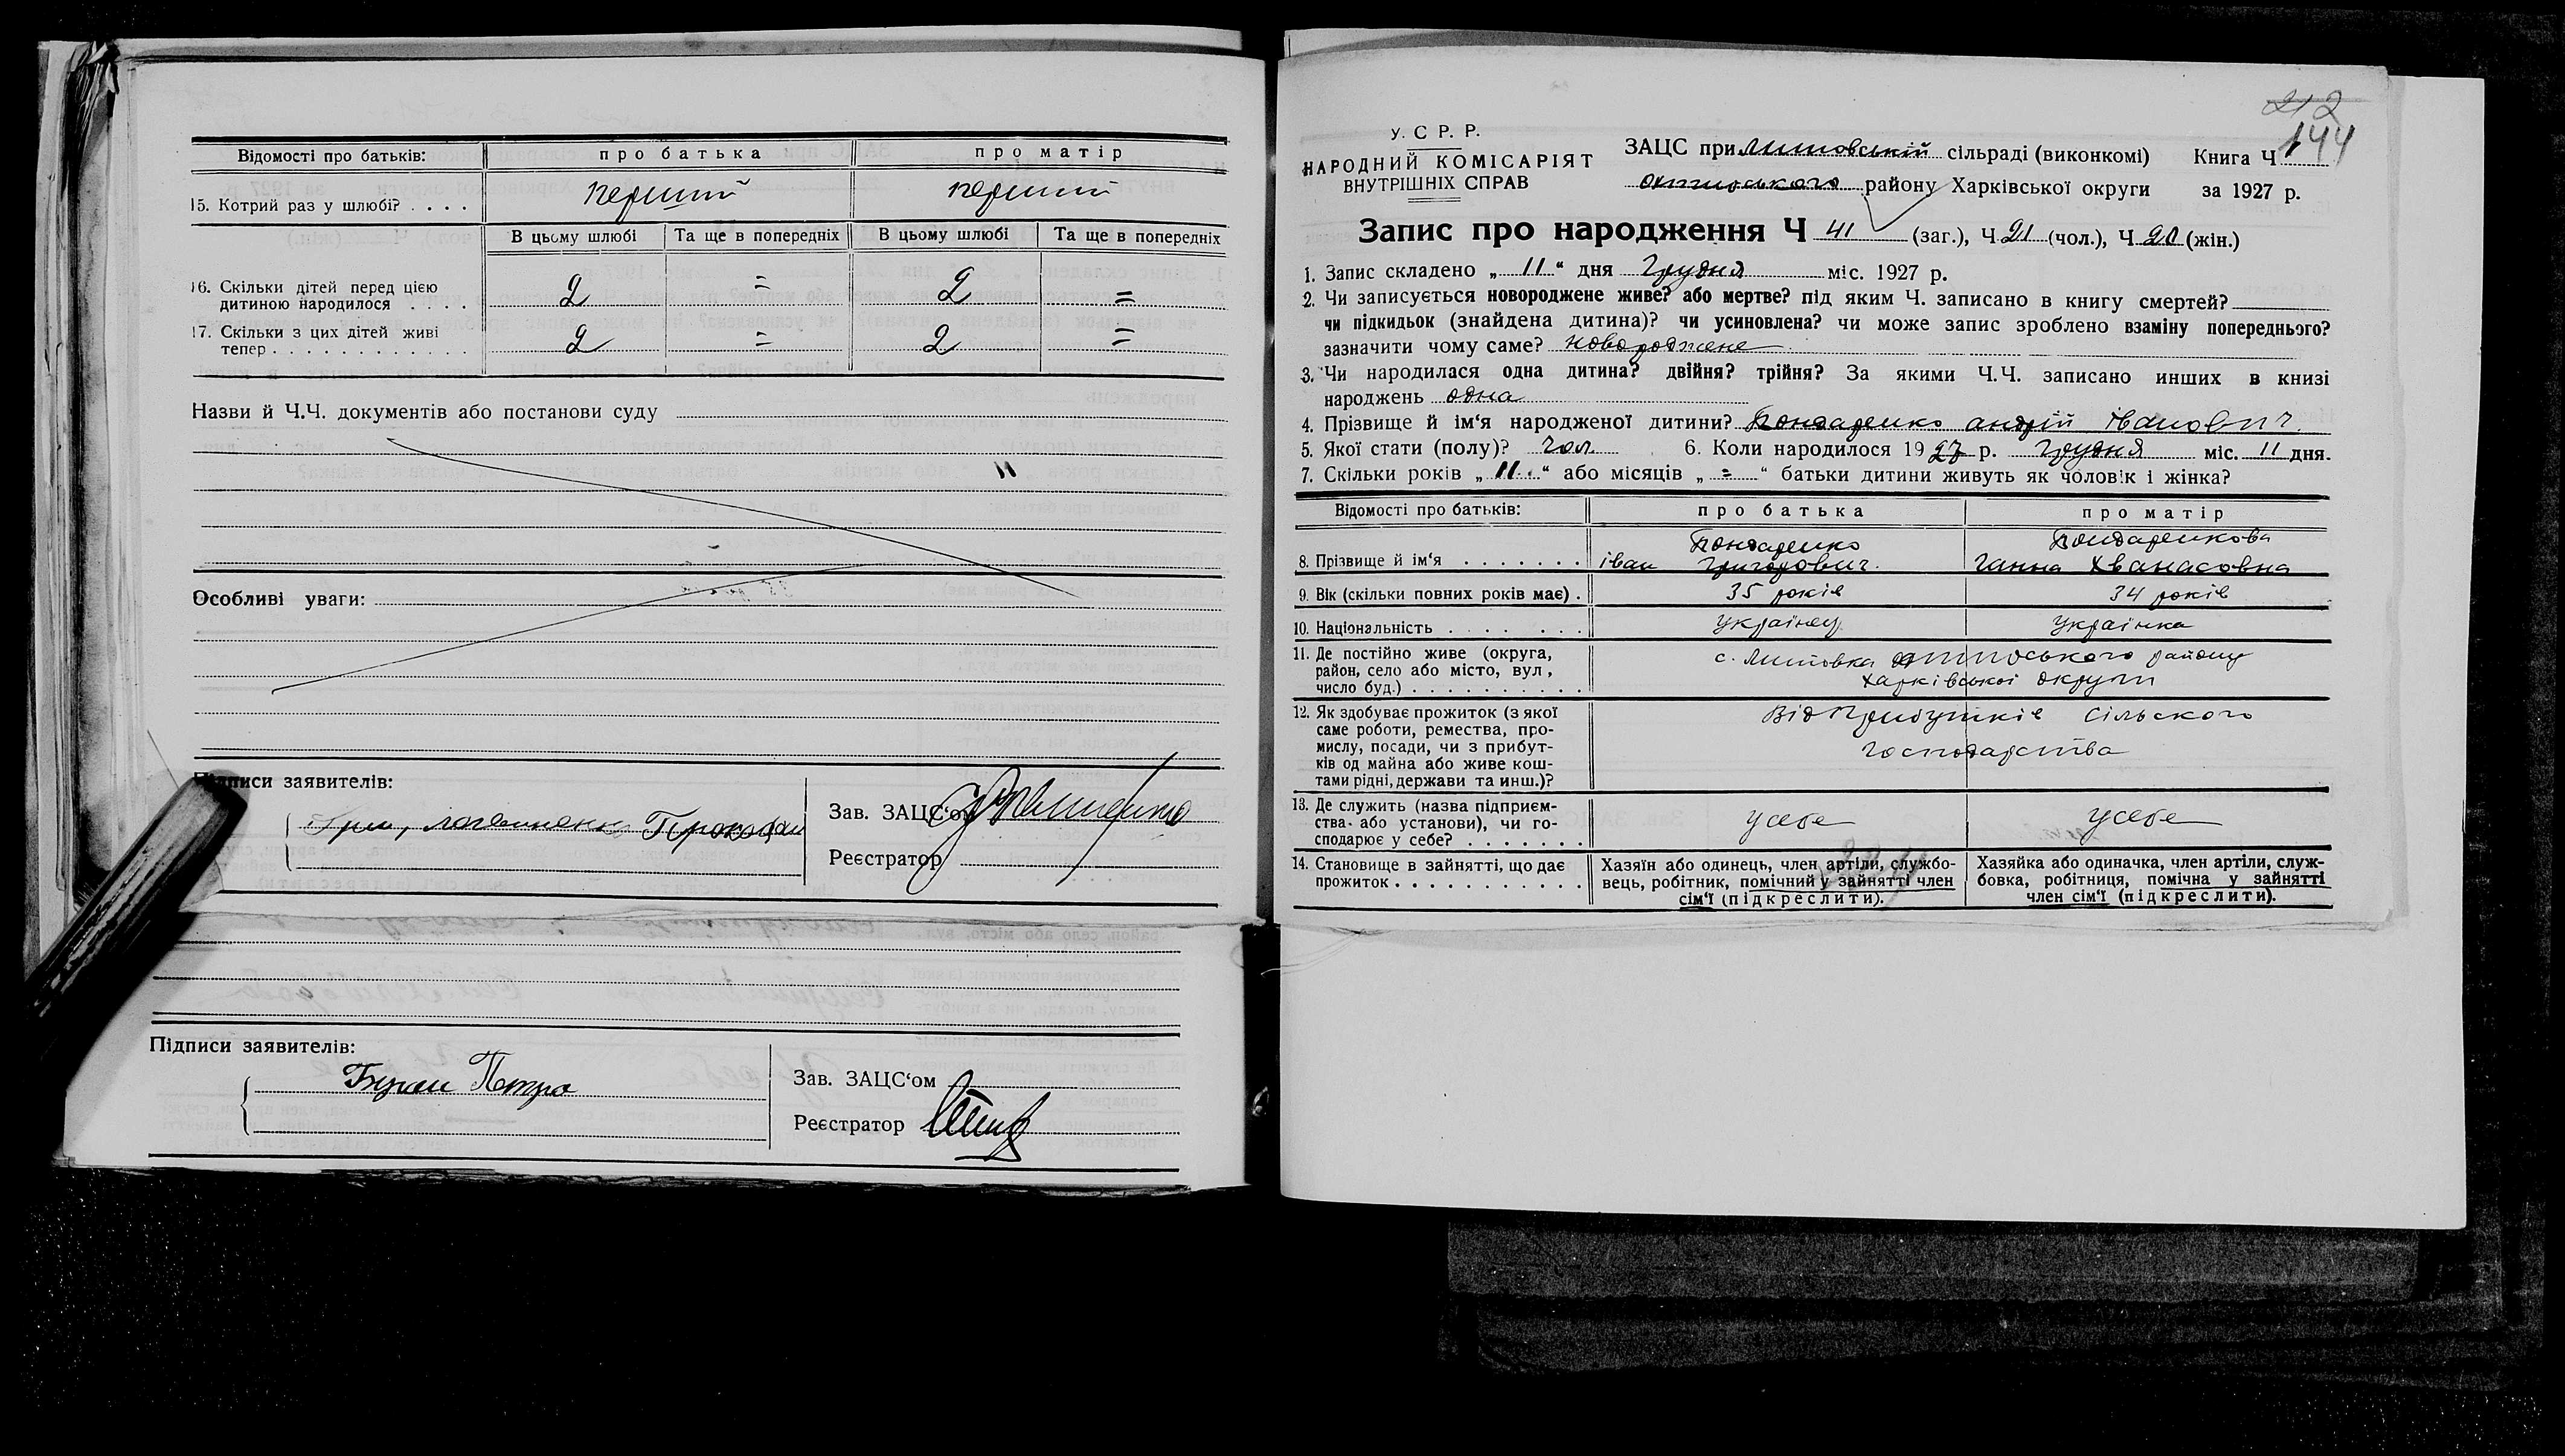 Відомості про батьків: про батька про матір
15. Котрий раз у шлюбі? . . . . перший перший
В цьому шлюбі Та ще в попередніх В цьому шлюбі Та ще в попередніх
16. Скільки дітей перед цією
дитиною народилося . . . . 2 = 2 =
17. Скільки з цих дітей живі
тепер . . . . . . . . . . . . . 2 = 2 =
Назви й Ч.Ч. документів або постанови суду
Особливі уваги:
Підписи заявителів:
Прокофан
Зав. ЗАЦС'ом
Реєстратор
Підписи заявителів:
Петро
Зав. ЗАЦС'ом
Реєстратор
212
144
У. С Р. Р.
НАРОДНИЙ КОМІСАРІЯТ
ВНУТРІШНІХ СПРАВ
ЗАЦС при Литовській сільраді (виконкомі) Книга Ч
району Харківської округи за 1927 р.
Запис про народження Ч 41 (заг.), Ч 21 (чол.), Ч 20 (жін.)
1. Запис складено „ 11 “ дня Грудня міс. 1927 р.
2. Чи записується новороджене живе? або мертве? під яким Ч. записано в книгу смертей?
чи підкидьок (знайдена дитина)? чи усиновлена? чи може запис зроблено взаміну попереднього?
зазначити чому саме? новороджене
3. Чи народилася одна дитина? двійня? трійня? За якими Ч.Ч. записано инших в книзі
народжень одна
4. Прізвище й ім‘я народженої дитини? Бондаренко андрій іванович
5. Якої стати (полу)? чол. 6. Коли народилося 1927 р. Грудня міс. 11 дня.
7. Скільки років „ 11 “ або місяців „ = “ батьки дитини живуть як чоловік і жінка?
Відомості про батьків: про батька про матір
8. Прізвище й ім‘я . . . . . . . Бондаренко
іван Григорович. Бондаренкова
Ганна Хванасовна
9. Вік (скільки повних років має) . 35 років 34 років
10. Національність . . . . . . . українец українка
11. Де постійно живе (округа,
район, село або місто, вул,
число буд.) . . . . . . . . . . . с. Литовка району
харківської округи
12. Як здобуває прожиток (з якої
саме роботи, ремества, про-
мислу, посади, чи з прибут-
ків од майна або живе кош-
тами рідні, держави та инш.)? від прибутків сільского
господарства
13. Де служить (назва підприєм-
ства або установи), чи го-
сподарює у себе? . . . . . . . усебе усебе
14. Становище в зайнятті, що дає
прожиток . . . . . . . . . . .
Хазяїн або одинець, член артіли, службо-
вець, робітник, помічний у зайнятті член
сім‘ї (підкреслити).
Хазяйка або одиначка, член артіли, служ-
бовка, робітниця, помічна у зайнятті
член сім‘ї (підкреслити).